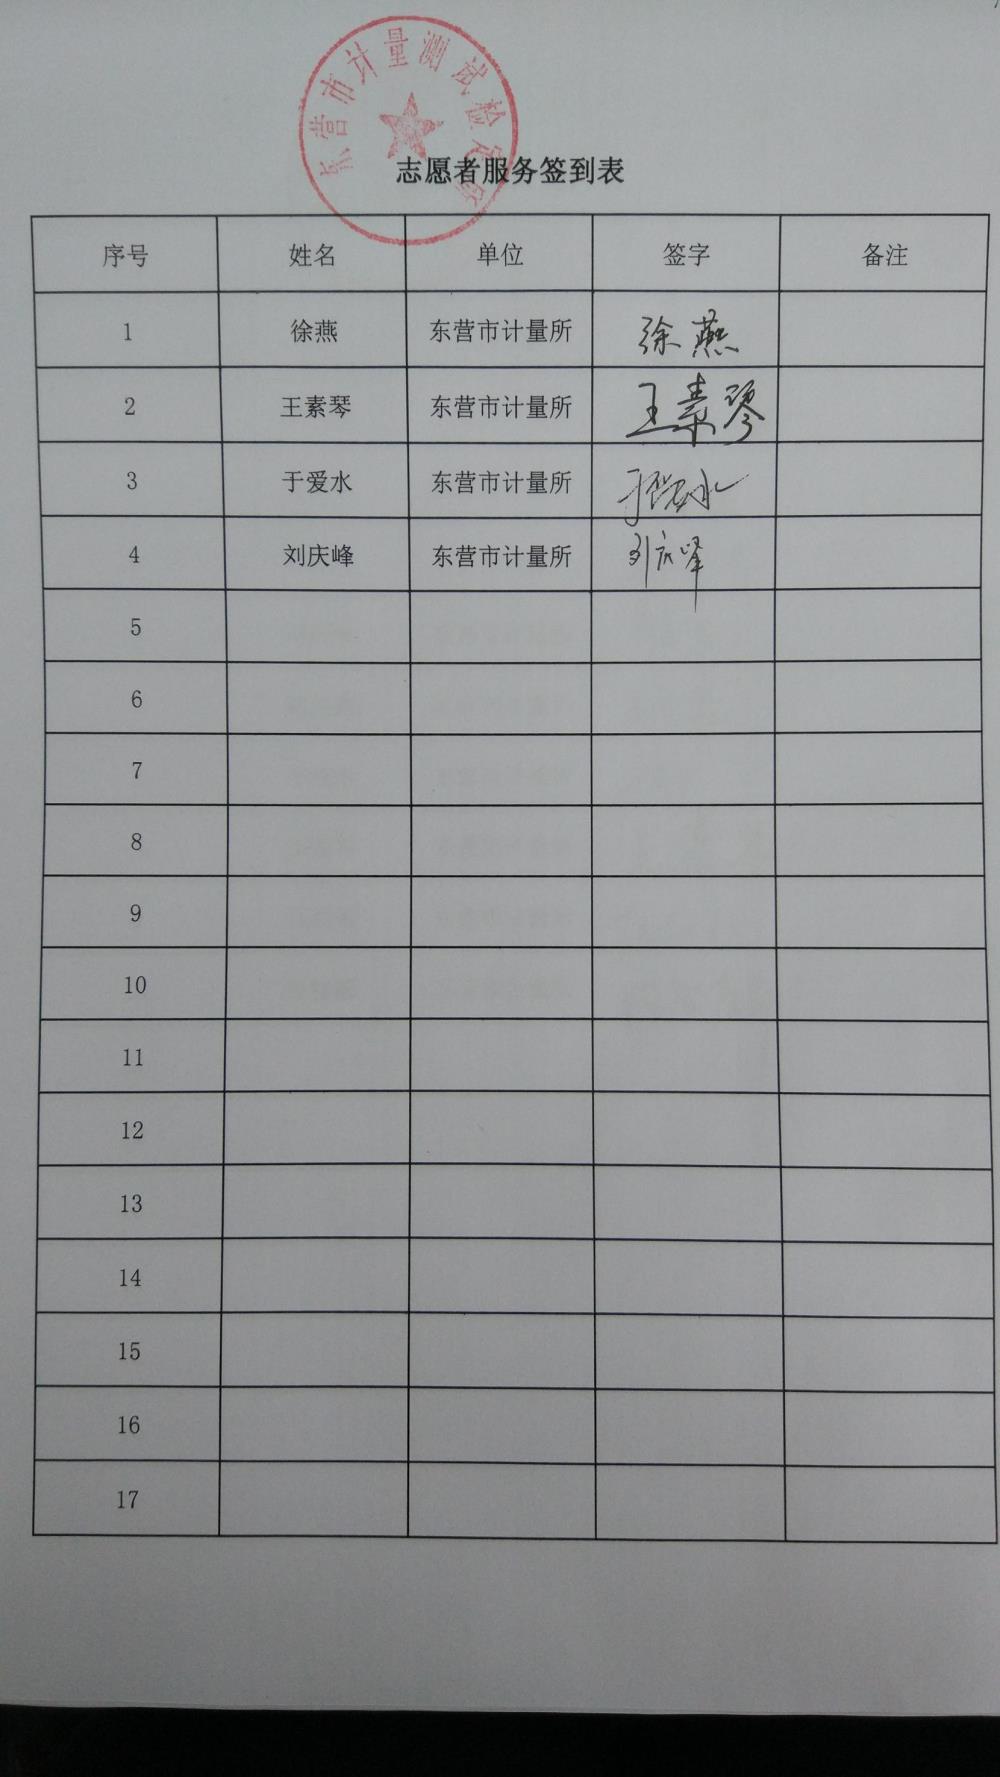 东营市计量测试检定所
志愿者服务签到表
序号 姓名 单位 签字 备注
1 徐燕 东营市计量所 徐燕
2 王素琴 东营市计量所 王素琴
3 于爱水 东营市计量所 于爱水
4 刘庆峰 东营市计量所 刘庆峰
5
6
7
8
9
10
11
12
13
14
15
16
17